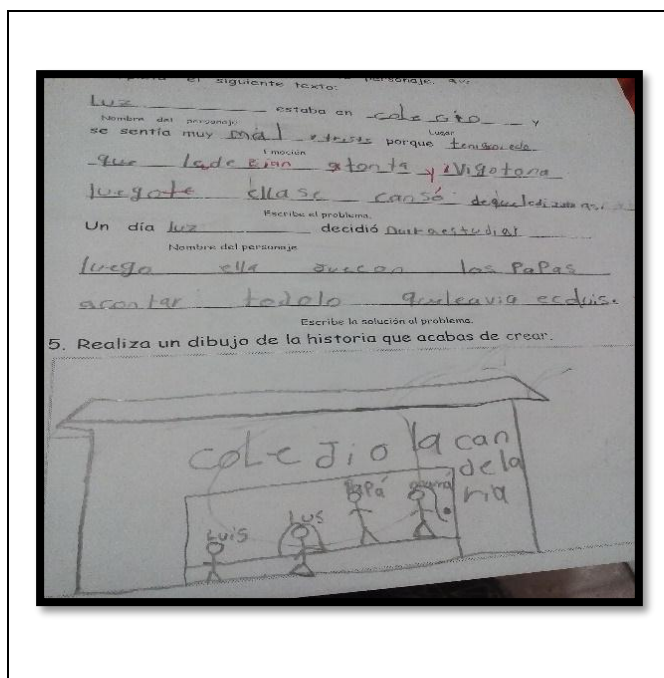 el siguiente texto:
Luz estaba en colegio y
Nombre del personaje Lugar
se sentía muy mal y triste porque
Emoción
que lade cian atonta y iVigotona
luegote ella se cansó
Escribe el problema.
Un día luz decidió
Nombre del personaje
luego ella con los PaPas
acontar todolo queleavia
Escribe la solución al problema.
5. Realiza un dibujo de la historia que acabas de crear.
coLe Jio la can
dela
ria
PaPá mamá
Luis Lus